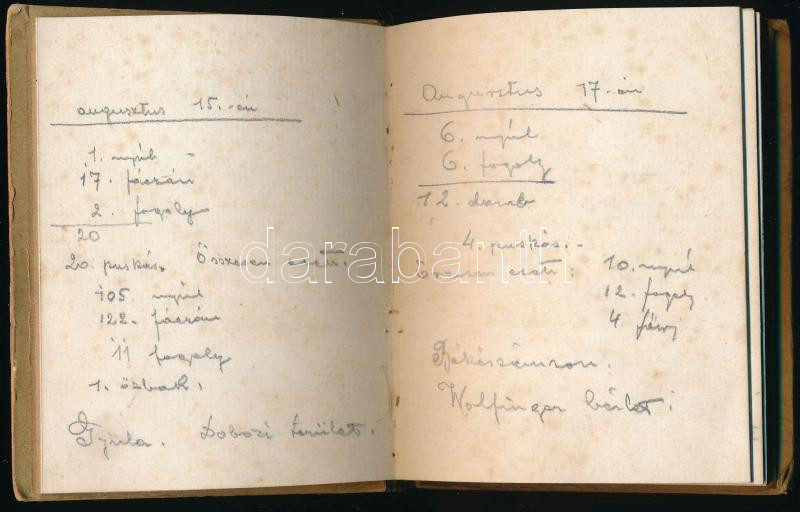 augusztus 15.-én
1. nyúl -
17. fáczán
2. fogoly
20
20. puskás. Összesen esett.
105. nyúl
122. fáczán
11 fogoly
1. özbak.
Gyula. Dobozi terület.
Augusztus 17-én
6. nyúl
6. fogoly
12. darab
4. puskás.-
Összesen esett:
10. nyúl
12. fogoly
4. fürj
Wolfinger bérlet.
darabanth